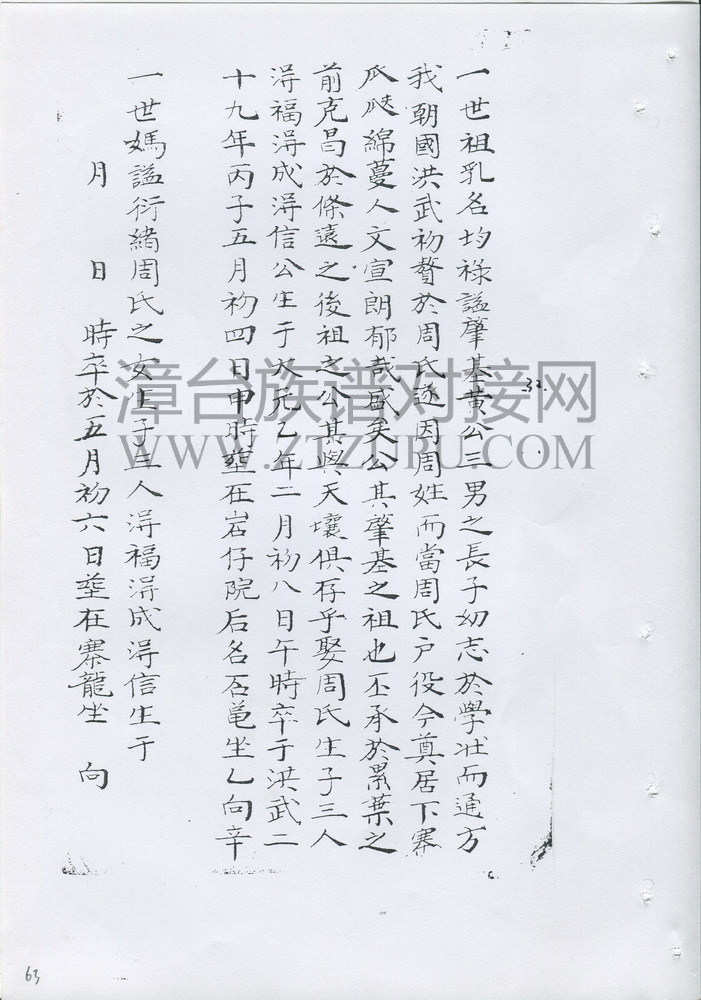 33.
一世祖乳名均祿謚肇基黄公三男之長子幼志於學壯而通方
我朝國洪武初贅於周氏遂因周姓而當周氏户役今奠居下寨
瓜瓞綿蔓人文宣朗郁哉盛矣公其肇基之祖也丕承於累葉之
前克昌於條遠之後祖之公其與天壤俱存乎娶周氏生子三人
淂福淂成淂信公生于大元乙年二月初八日午時卒于洪武二
十九年丙子五月初四日申時塟在岩仔院后名石亀坐乙向辛
一世媽謚衍緒周氏之女生子三人淂福淂成淂信生于
月 日 時卒於五月初六日塟在寨龍坐 向
漳台族谱对接网
WWW.ZTZUPU.COM
63